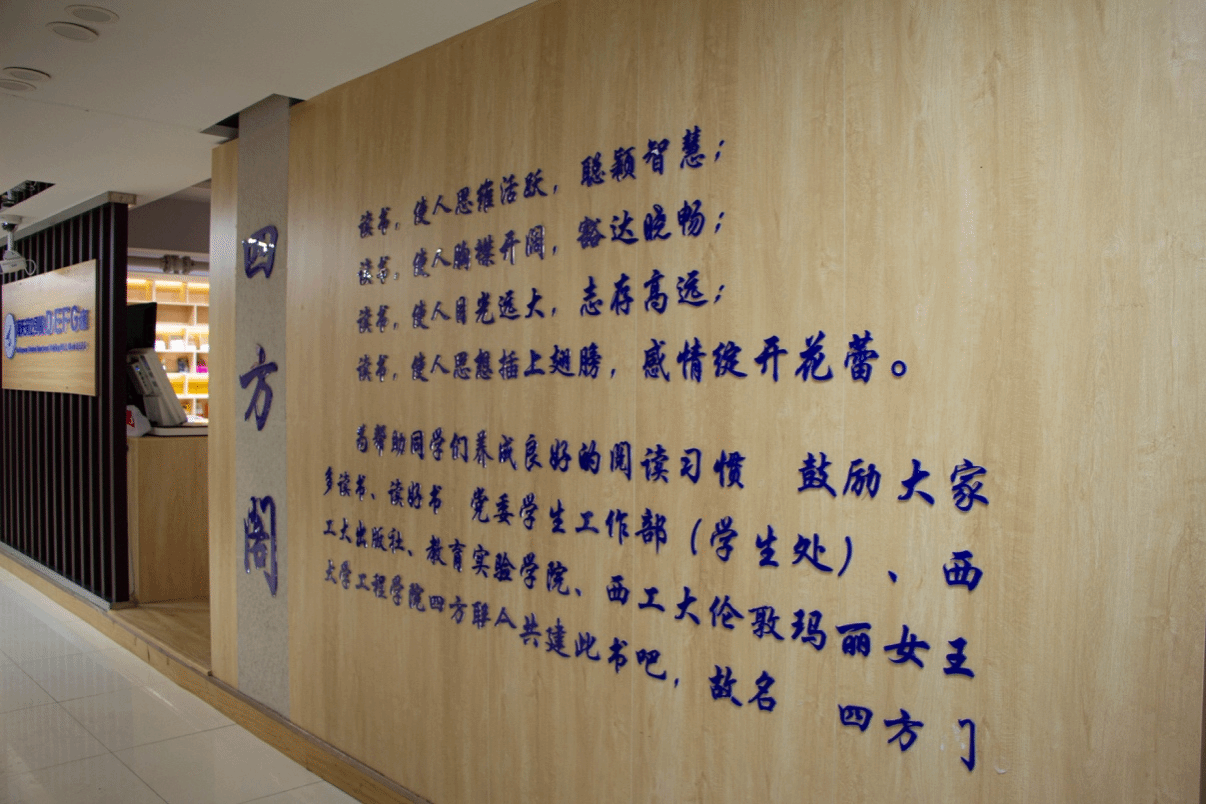 四方阁
读书，使人思维活跃，聪颖智慧；
读书，使人胸襟开阔，豁达晓畅；
读书，使人目光远大，志存高远；
读书，使人思想插上翅膀，感情绽开花蕾。
为帮助同学们养成良好的阅读习惯 鼓励大家
多读书、读好书 党委学生工作部（学生处）、西
工大出版社、教育实验学院、西工大伦敦玛丽女王
大学工程学院四方联亼共建此书吧，故名 四方